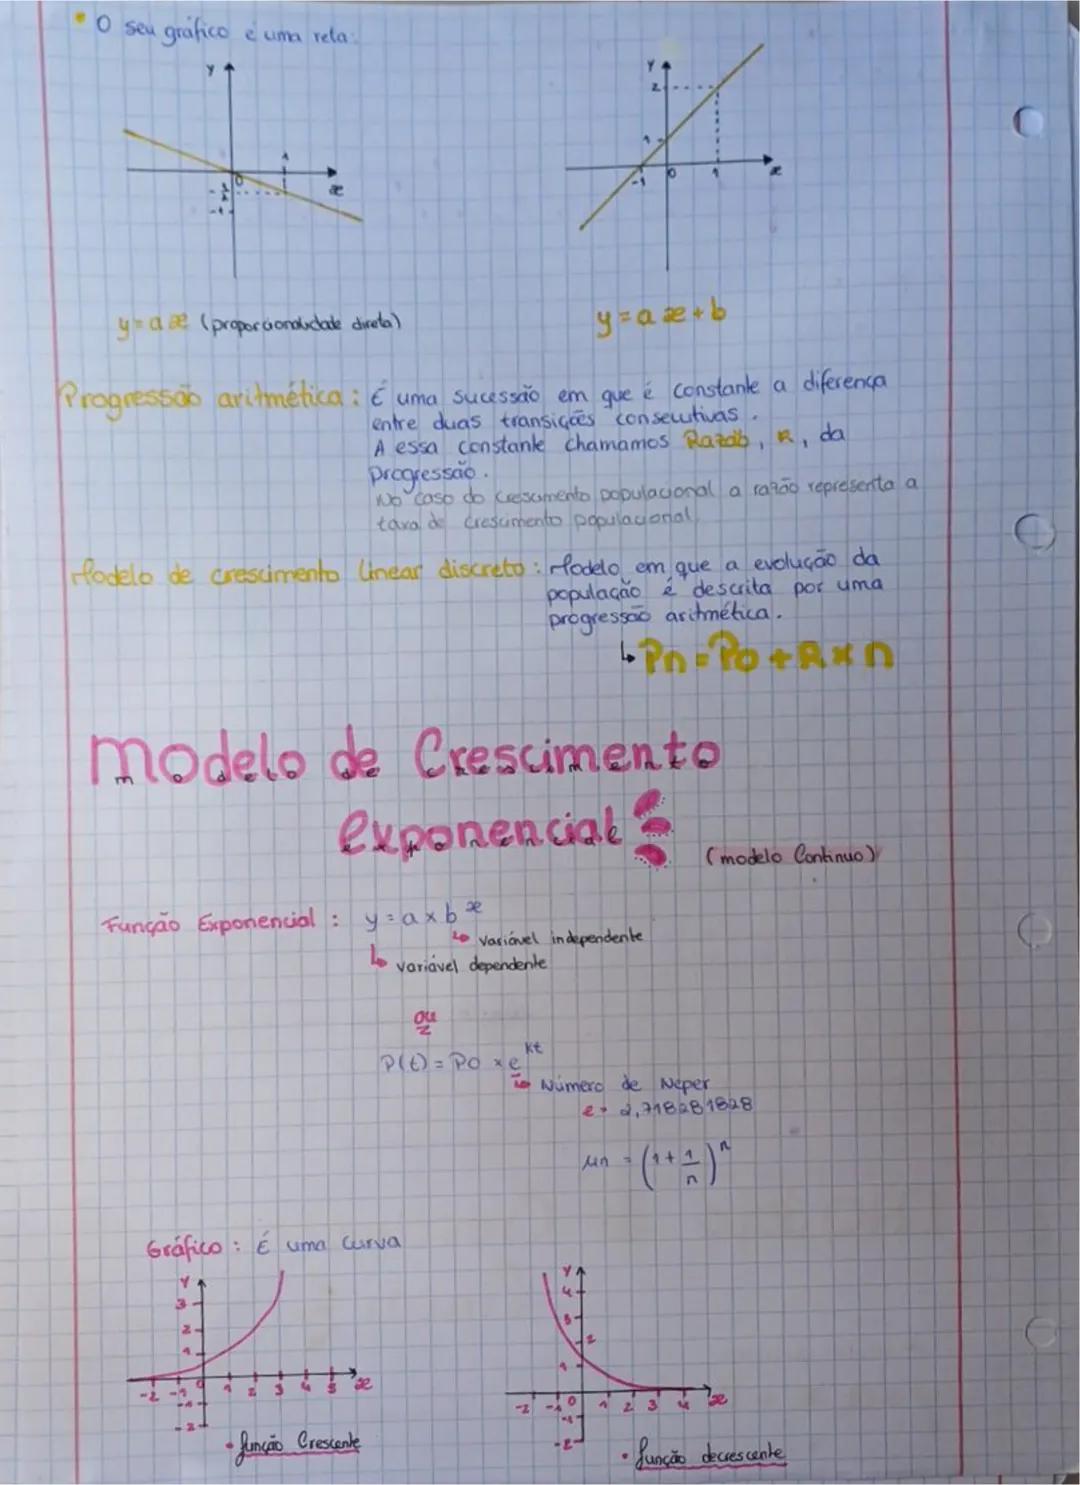 • O seu gráfico é uma reta:
y
0
1
x
-1/2
-1
y
2
1
-1
0
1
x
y = a x (proporcionalidade direta)
y = a x + b
Progressão aritmética: É uma sucessão em que é constante a diferença
entre duas transições consecutivas.
A essa constante chamamos Razão, R, da
progressão.
No caso do crescimento populacional a razão representa a
taxa de crescimento populacional.
Modelo de crescimento linear discreto: Modelo em que a evolução da
população é descrita por uma
progressão aritmética.
↳ Pn = P0 + R × n
modelo de Crescimento
exponencial
(modelo Contínuo)
Função Exponencial: y = a × b^x
↳ variável independente
↳ variável dependente
ou
P(t) = P0 × e^kt
↳ Número de Neper
e = 2,718281828
μn = (1 + 1/n)^n
Gráfico: É uma curva
y
3
2
1
-2 -1 0 1 2 3 4 5 x
-1
-2
• função Crescente
y
4
3
2
1
-2 -1 0 1 2 3 4 x
-1
-2
• função decrescente